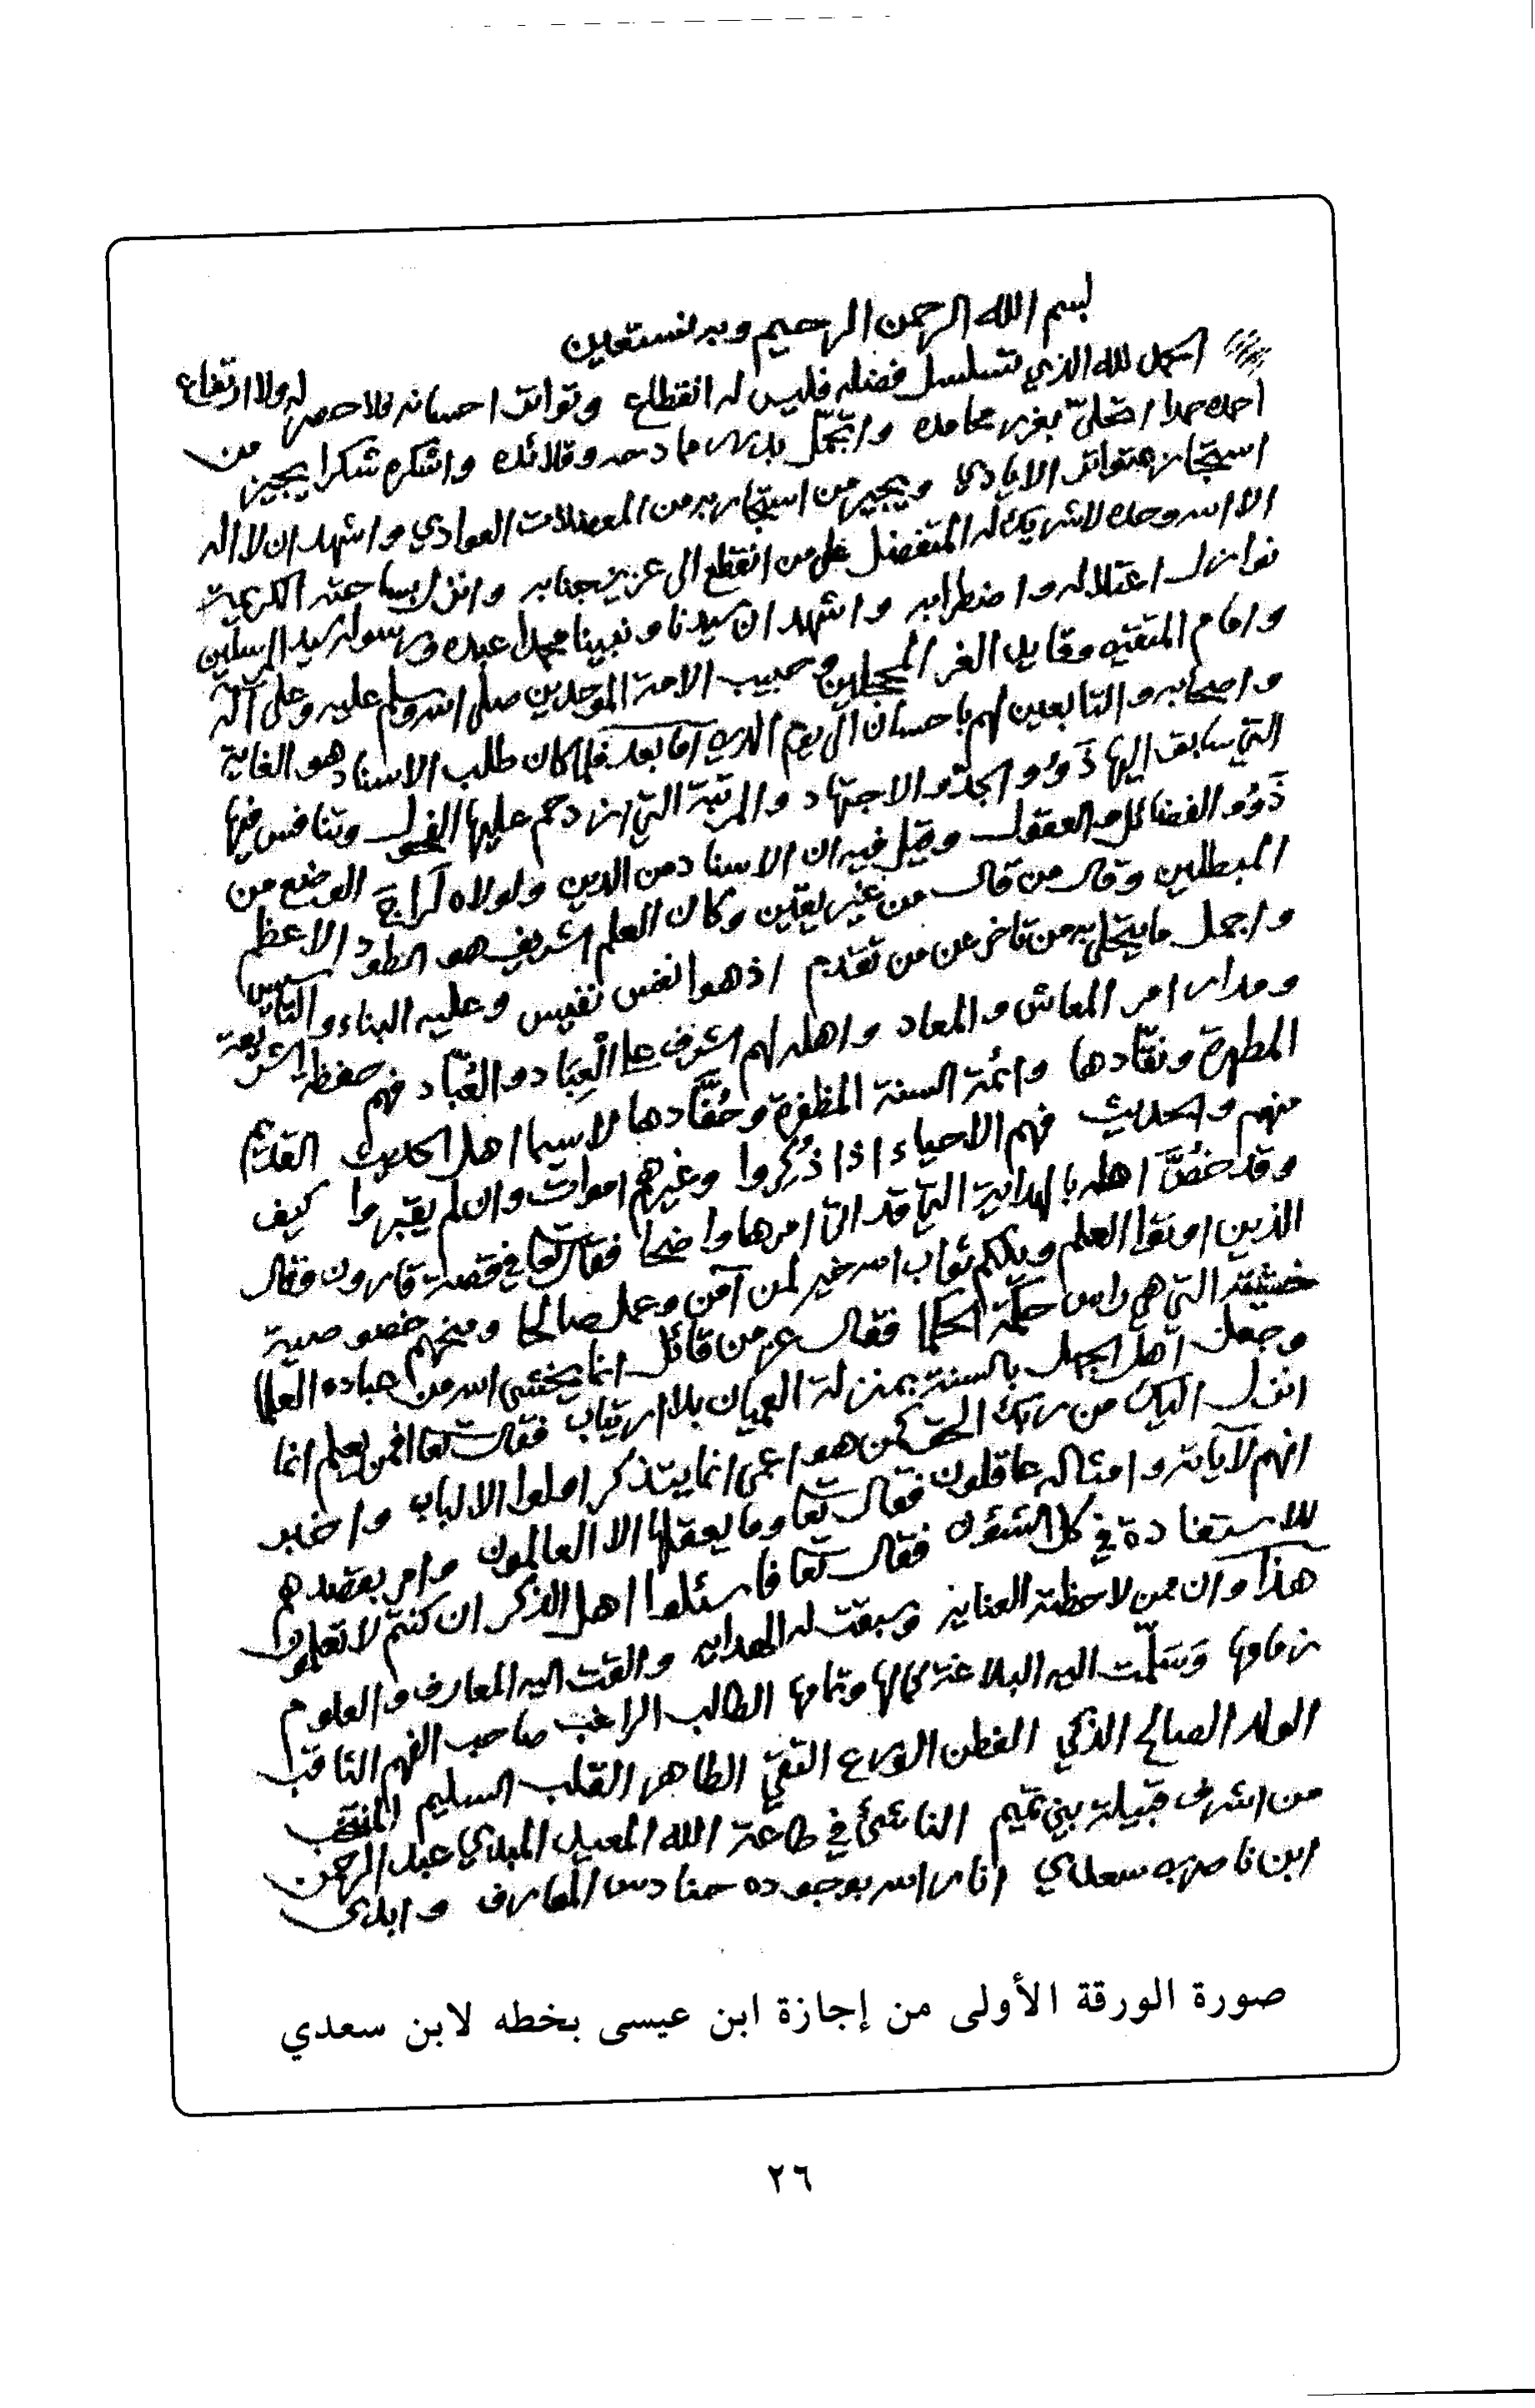 بسم الله الرحمن الرحيم وبه نستعين
الحمد لله الذي تسلسل فضله فليس له انقطاع وتواتر احسانه فلا حصر له ولا ارتفاع
احمده حمدا اتحلىّ بغرر محامده واتجمّل بدرر مادحه وقلائده واشكره شكرا يجيز من
استجاز متواتر الايادي ويجير من استجار به من المعضلات العوادي واشهد ان لا اله
الا الله وحده لا شريك له المتفضل على من انقطع الى عزيز جنابه وانزل بساحته الكريمة
نوازل اعتلاله واضطرابه واشهد ان سيدنا ونبينا محمدا عبده ورسوله سيد المرسلين
وامام المتقين وقايد الغر المحجلين وحبيب الامة الموحدين صلى الله وسلم عليه وعلى آله
واصحابه والتابعين لهم باحسان الى يوم الدين اما بعد فلما كان طلب الاسناد هو الغاية
التي سابق اليها ذَوُو الجدّ والاجتهاد والمرتبة التي ازدحم عليها الفحول وتنافس فيها
ذَوُو الفضائل والعقول وقيل فيه ان الاسناد من الدين ولولاه لَراجَ الوضع من
المبطلين وقال من قال من غير يقين وكان العلم الشريف هو الطود الاعظم
واجمل ما يتحلى به من تاخر عن من تقدم اذ هو انفس نفيس وعليه البناء والتاسيس
ومدار امر المعاش والمعاد واهله لهم الشرف على الْعِبَاد والعُبّاد فهم حفظة الشريعة
المطهرة ونقّادها وائمة السنة المظفرة وحُفَّادها لا سيما اهل الحديث القديم
منهم والحديث فهم الاحياء اذا ذُكِروا وغيرهم اموات وان لم يقبروا كيف
وقد خصَّ اهله بالهداية التي قد اتى امرها واضحا فقال تعالى في قصة قارون وقال
الذين اوتوا العلم ويلكم ثواب الله خير لمن آمن وعمل صالحا ومنحهم خصوصية
خشيته التي هي راس حكمة الحكما فقال عز من قائل انما يخشى الله من عباده العلما
وجعل اهل الجهل بالسنة بمنزلة العميان بلا ارتياب فقال تعالى افمن يعلم انما
انزل اليك من ربك الحق كمن هو اعمى انما يتذكر اولوا الالباب واخبر
انهم لآياته وامثاله عاقلون فقال تعالى وما يعقلها الا العالمون وامر بقصدهم
للاستفادة في كل الشئون فقال تعالى فاسئلوا اهل الذكر ان كنتم لا تعلمون
هذا وان ممن لاحظته العناية وسبقت له الهداية والقت اليه المعارف والعلوم
زمامها وَسَلّمت اليه البلاغة كمالها وتمامها الطالب الراغب صاحب الفهم الثاقب
الولد الصالح الذكي الفطن الورع التقي الطاهر القلب السليم المنتخب
من اشرف قبيلة بني تميم الناشئ في طاعة الله المعيد المبدي عبد الرحمن
ابن ناصر بن سعدي انار الله بوجوده حنادس المعارف وابدى
صورة الورقة الأولى من إجازة ابن عيسى بخطه لابن سعدي
٢٦